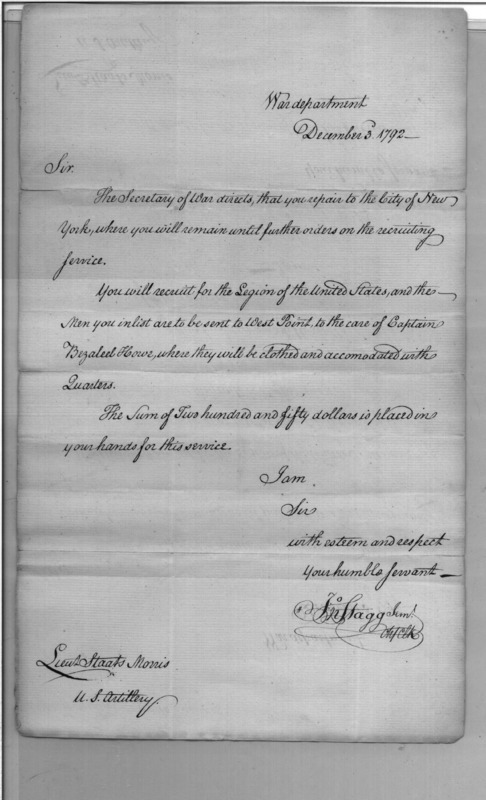 War department
December 3d. 1792—
Sir.
The Secretary of War directs, that you repair to the City of New
York, where you will remain until further orders on the recruiting
service.
You will recruit for the Legion of the United States, and the
Men you inlist are to be sent to West Point, to the care of Captain
Bezaleel Howe, where they will be clothed and accomodated with
Quarters.
The Sum of Two hundred and fifty dollars is placed in
your hands for this service.
I am
Sir
with esteem and respect
Your humble Servant—
Jno Stagg Junr.
Chf Clk
Lieut. Staats Morris
U. S. Artillery.